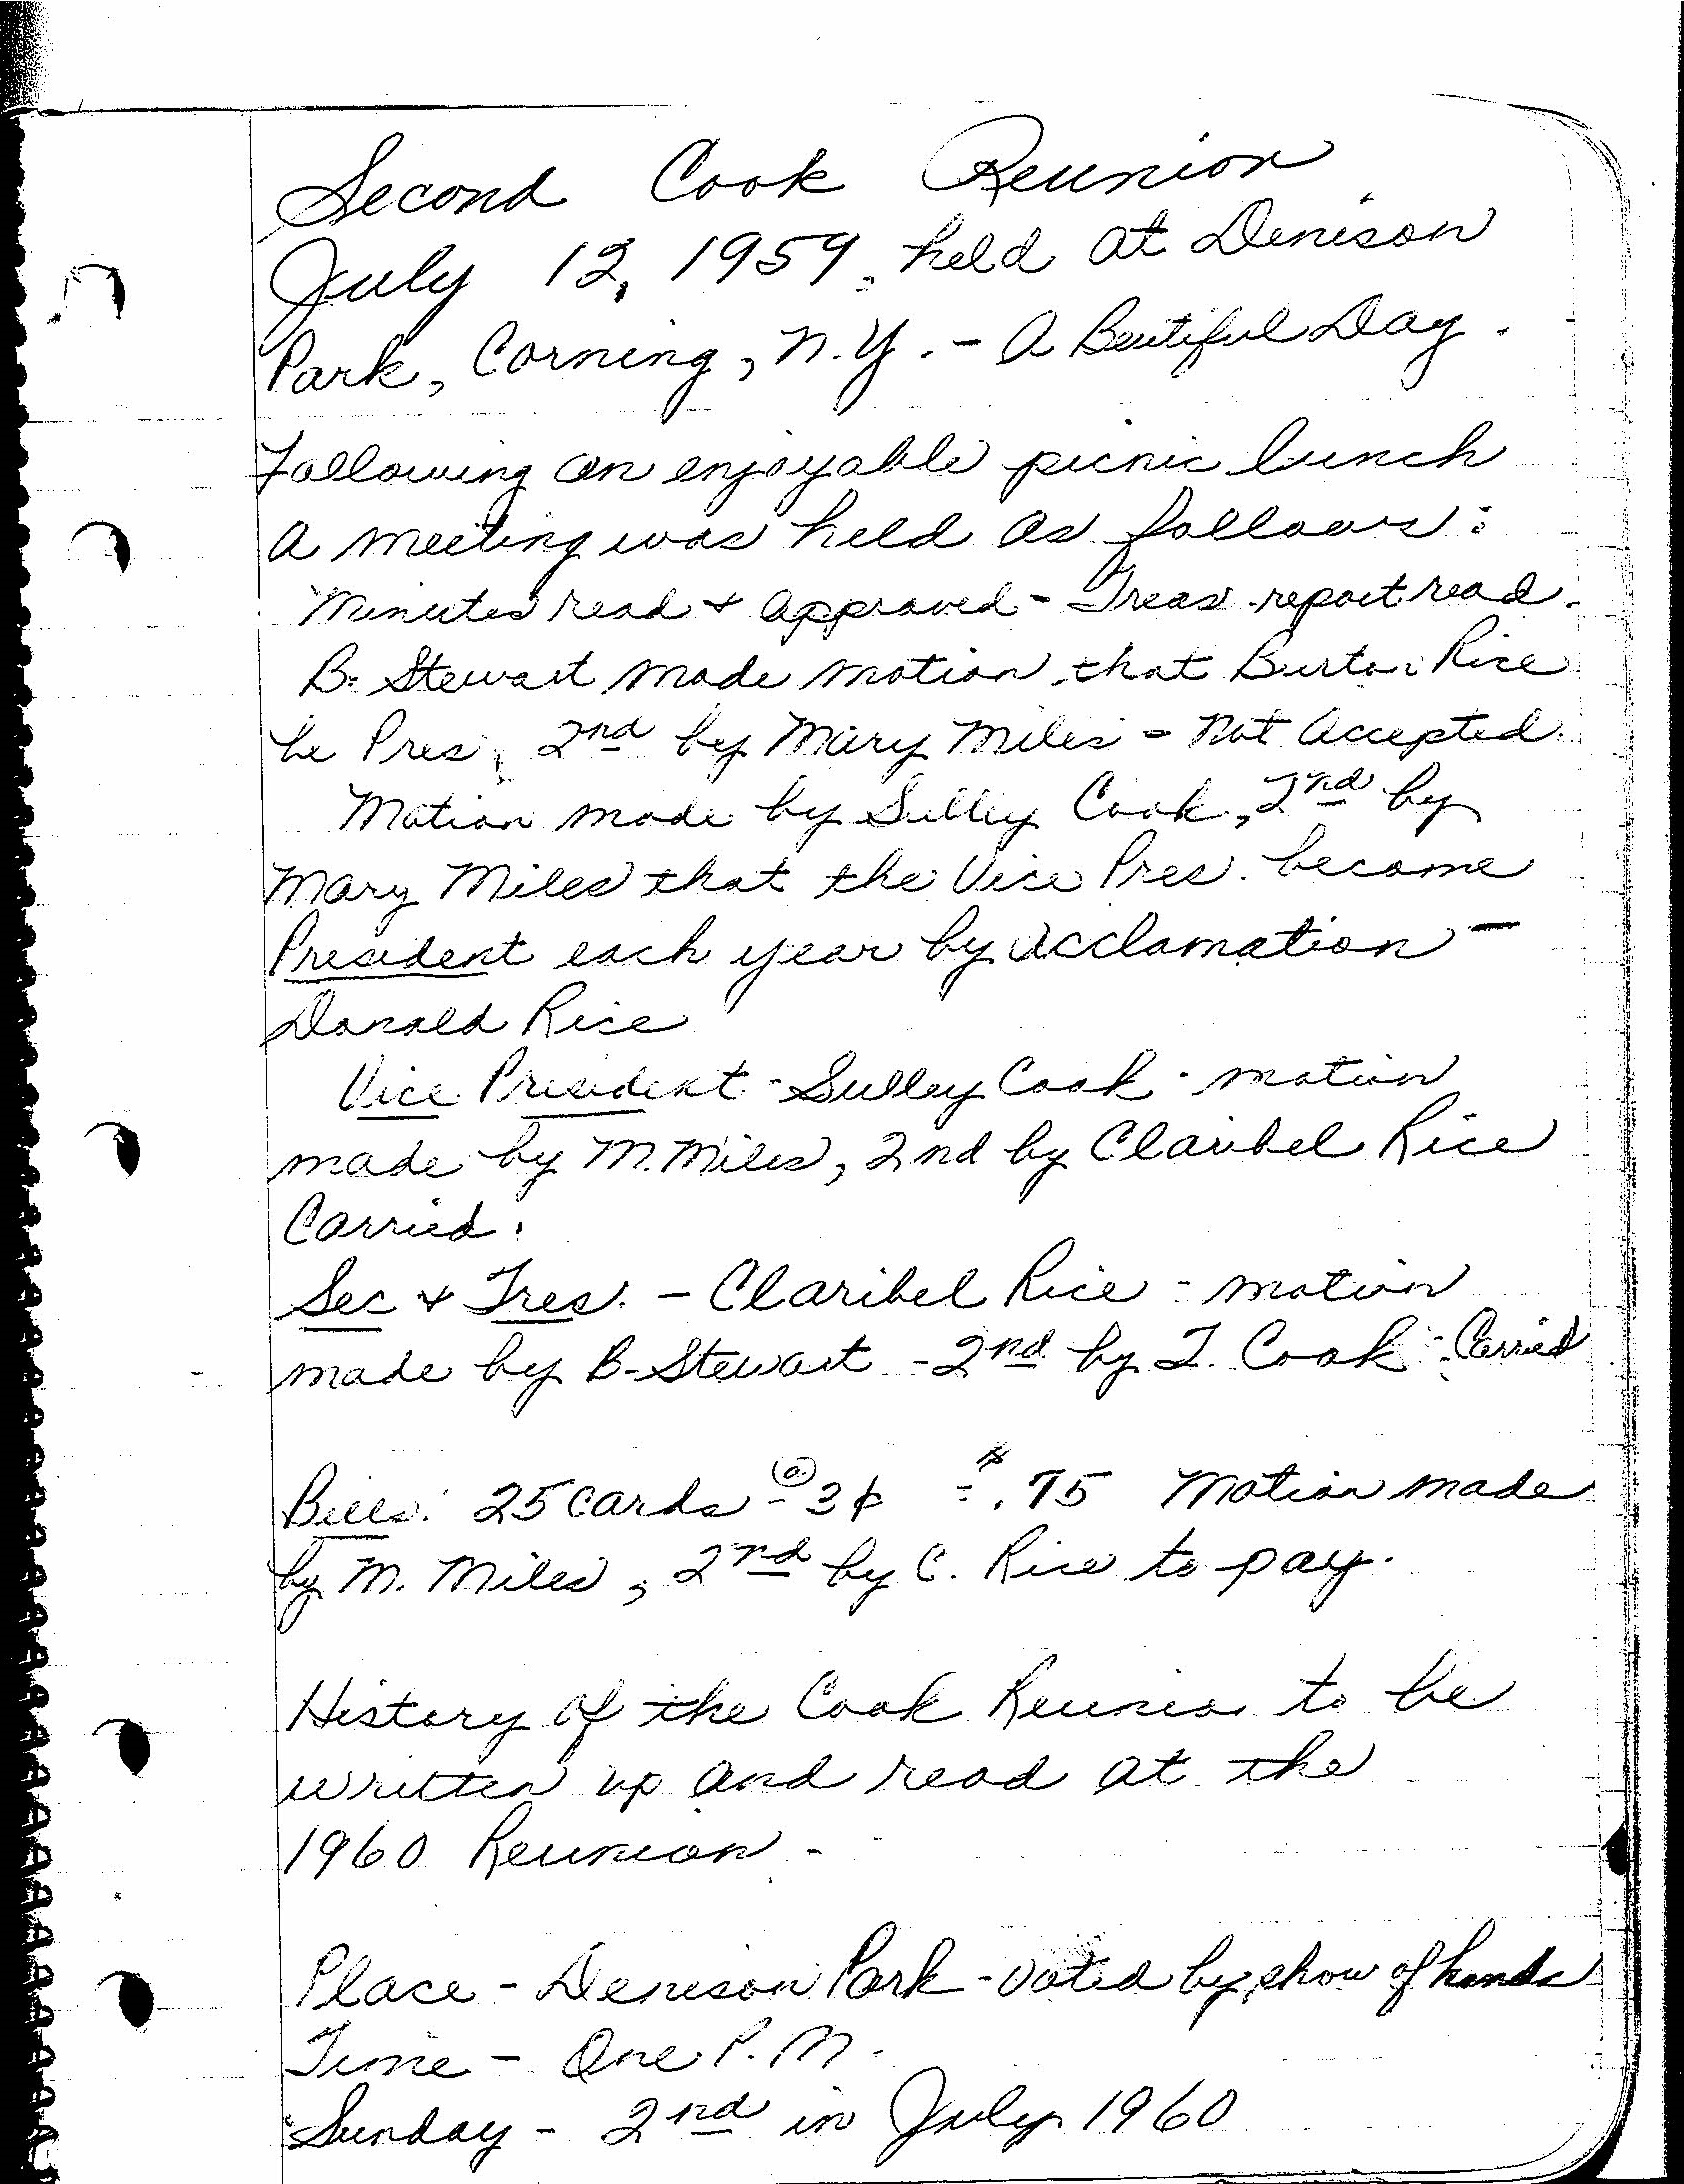 Second Cook Reunion
July 12, 1959, held at Denison
Park, Corning, N.Y. - A Beutiful Day.
Following an enjoyable picnic lunch
a meeting was held as follows:
Minutes read + approved - Treas. report read.
B. Stewart made motion that Burton Rice
be Pres, 2nd by Mary Miles - Not Accepted.
Motion made by Sulley Cook, 2nd by
Mary Miles that the Vice Pres. become
President each year by acclamation -
Donald Rice
Vice President - Sulley Cook - motion
made by M. Miles, 2nd by Claribel Rice
Carried.
Sec + Tres. - Claribel Rice - motion
made by B. Stewart - 2nd by T. Cook - Carried
Bills: 25 cards - @ 3¢ = $.75 Motion made
by M. Miles, 2nd by C. Rice to pay.
History of the Cook Reunion to be
written up and read at the
1960 Reunion -
Place - Denison Park - voted by show of hands
Time - One P.M.
Sunday - 2nd in July 1960